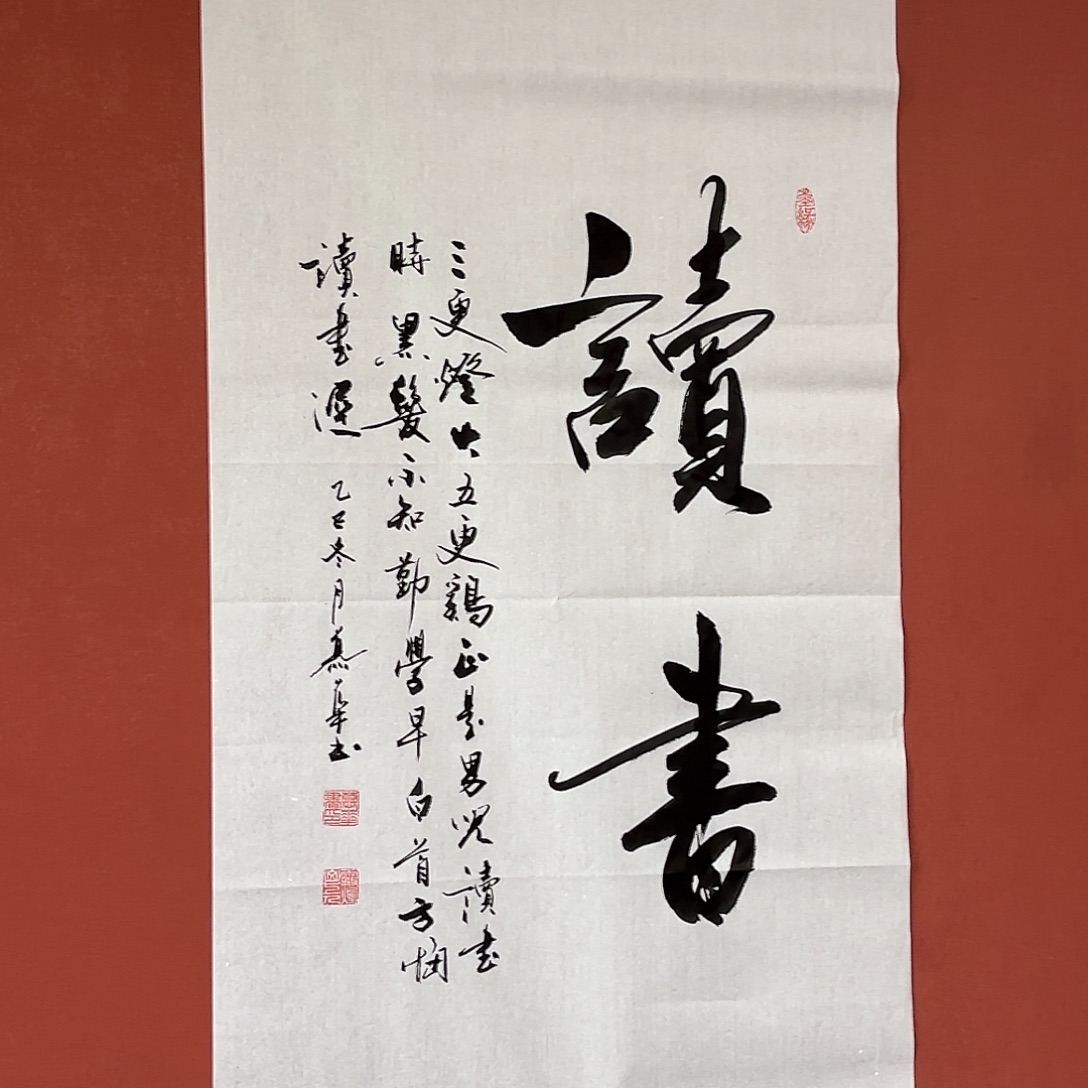 讀書
三更燈火五更鷄正是男兒讀書
時黑髮不知勤學早白首方悔
讀書遲
乙巳冬月慕華书